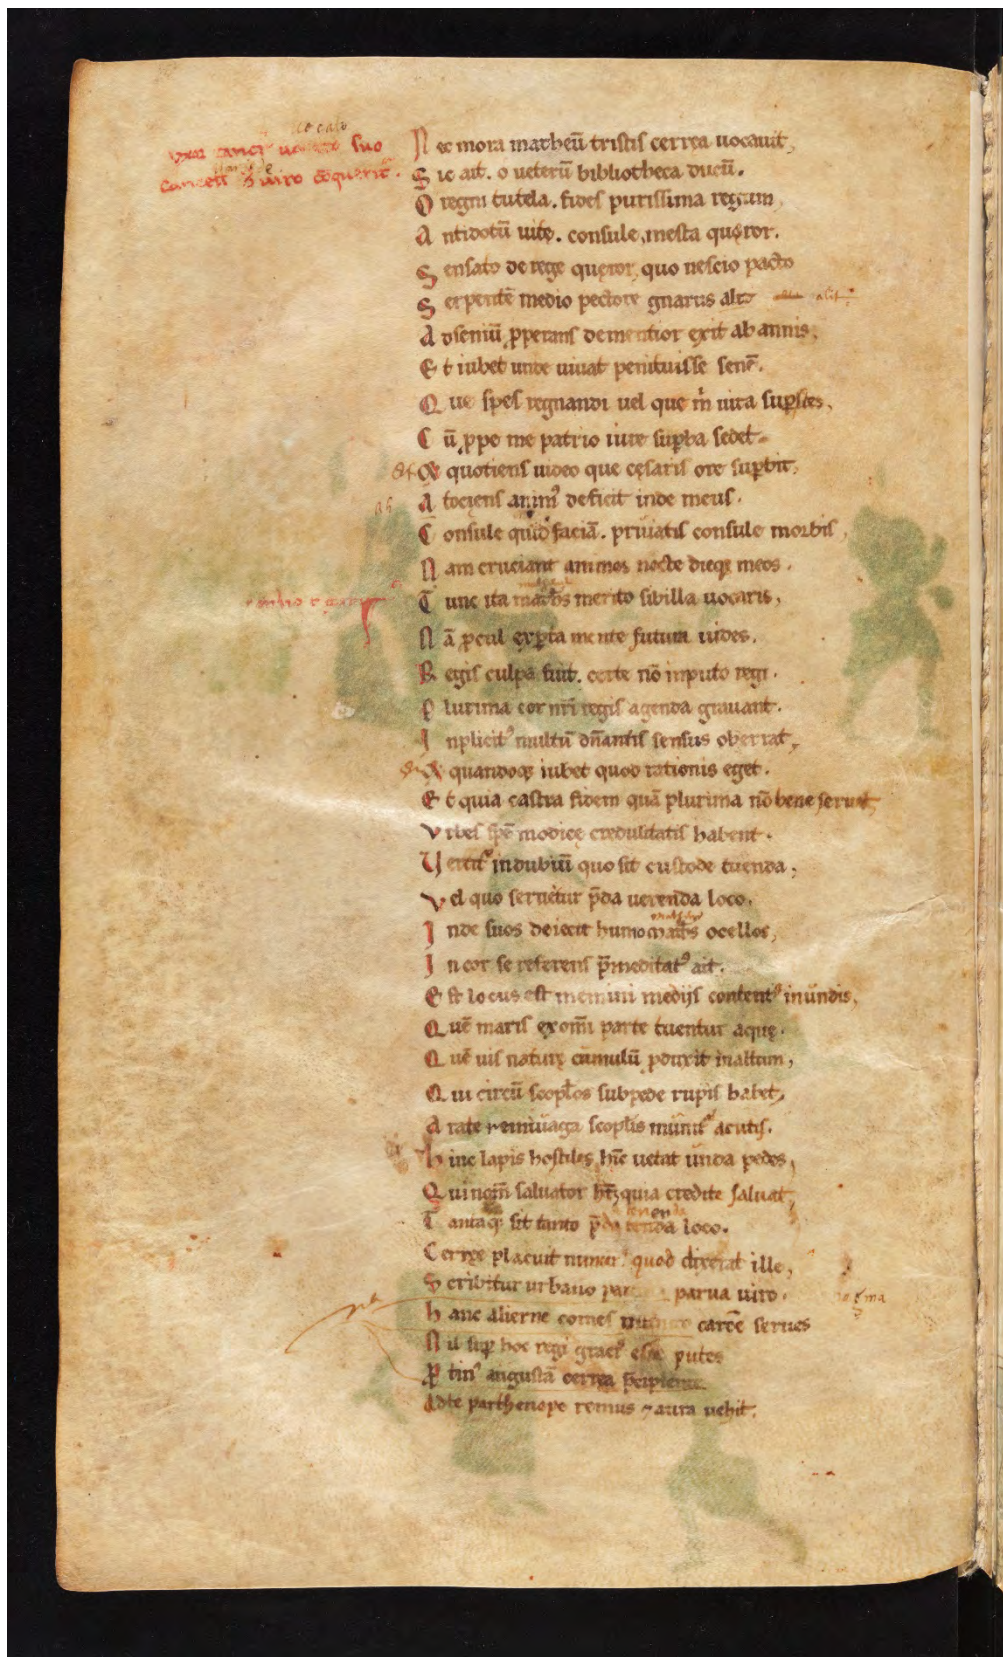 uxor tancr uocato suo
cancell uiro coquerit.
Nec mora matheū tristis cerrea uocauit,
Sic ait. o ueterū bibliotheca ducū.
O regni tutela. fides purissima regum,
Antidotū uitę. consule, mesta quęror.
Sensato de rege quęror, quo nescio pacto
Serpentē medio pectore gnarus alit
Ad seniū ꝓperans dementior exit ab annis,
Et iubet unde uiuat penituisse senē.
Que spes regnandi uel que m̄ uita suꝑstes,
Cū ꝓpe me patrio iure suꝑba sedet.
Et quotiens uideo que cęsaris ore suꝑbit,
A tociens animꝰ deficit inde meus.
Consule quid faciā. priuatis consule morbis,
Nam cruciant animos nocte dieqꝫ meos.
Tunc ita merito sibilla uocaris,
Nā ꝓcul exꝑta mente futura uides.
Regis culpa fuit. certe nō inputo regi.
Plurima cor nr̄i regis agenda grauant.
Inplicitꝰ multū dn̄antis sensus oberrat,
Et quandoqꝫ iubet quod rationis eget.
Et quia castra fidem quā plurima nō bene seruent,
Vrbes spē modicę credulitatis habent.
Vertitꝰ in dubiū quo sit custode tuenda,
Vel quo seruetur p̄da uerenda loco.
Inde suos deiecit humo ocellos,
In cor se referens p̄meditatꝰ ait.
Est locus est memini medijs contentꝰ in undis,
Quē maris ex om̄i parte tuentur aquę.
Quē uis naturę cumulū ꝑduxit in altum,
Qui circū scopłos sub pede rupis habet,
A rate remiuaga scoplis munitꝰ acutis.
Hinc lapis hostiles, hinc uetat unda pedes,
Qui nom̄ saluator ht, quia credite saluat,
Tantaqꝫ sit tanto p̄da loco.
Cerree placuit nimirꝰ quod dixerat ille,
Scribitur urbano parua uiro.
Hanc alierne comes carcē serues
Nil suꝑ hoc regi graciꝰ esse putes
Ꝓtinꝰ angustā cerrea
Ad te parthenope remus ⁊ aura uehit.